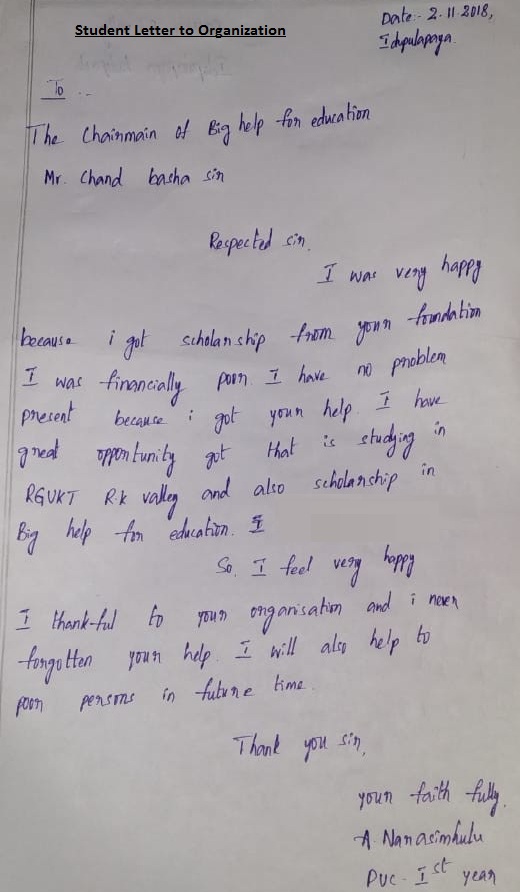 Student Letter to Organization
Date:- 2.11.2018,
Idupulapaya.
To ..
The Chairmain of Big help for education
Mr. Chand basha sir
Respected sir.
I was very happy
because i got scholarship from your foundation
I was financially poor. I have no problem
present because i got your help. I have
great opportunity got that is studying in
RGUKT R.k valley and also scholarship in
Big help for education. I
So, I feel very happy
I thank-ful to your organisation and i never
forgotten your help. I will also help to
poor persons in future time.
Thank you sir,
your faith fully,
A. Narasimhulu
PUC - Ist year